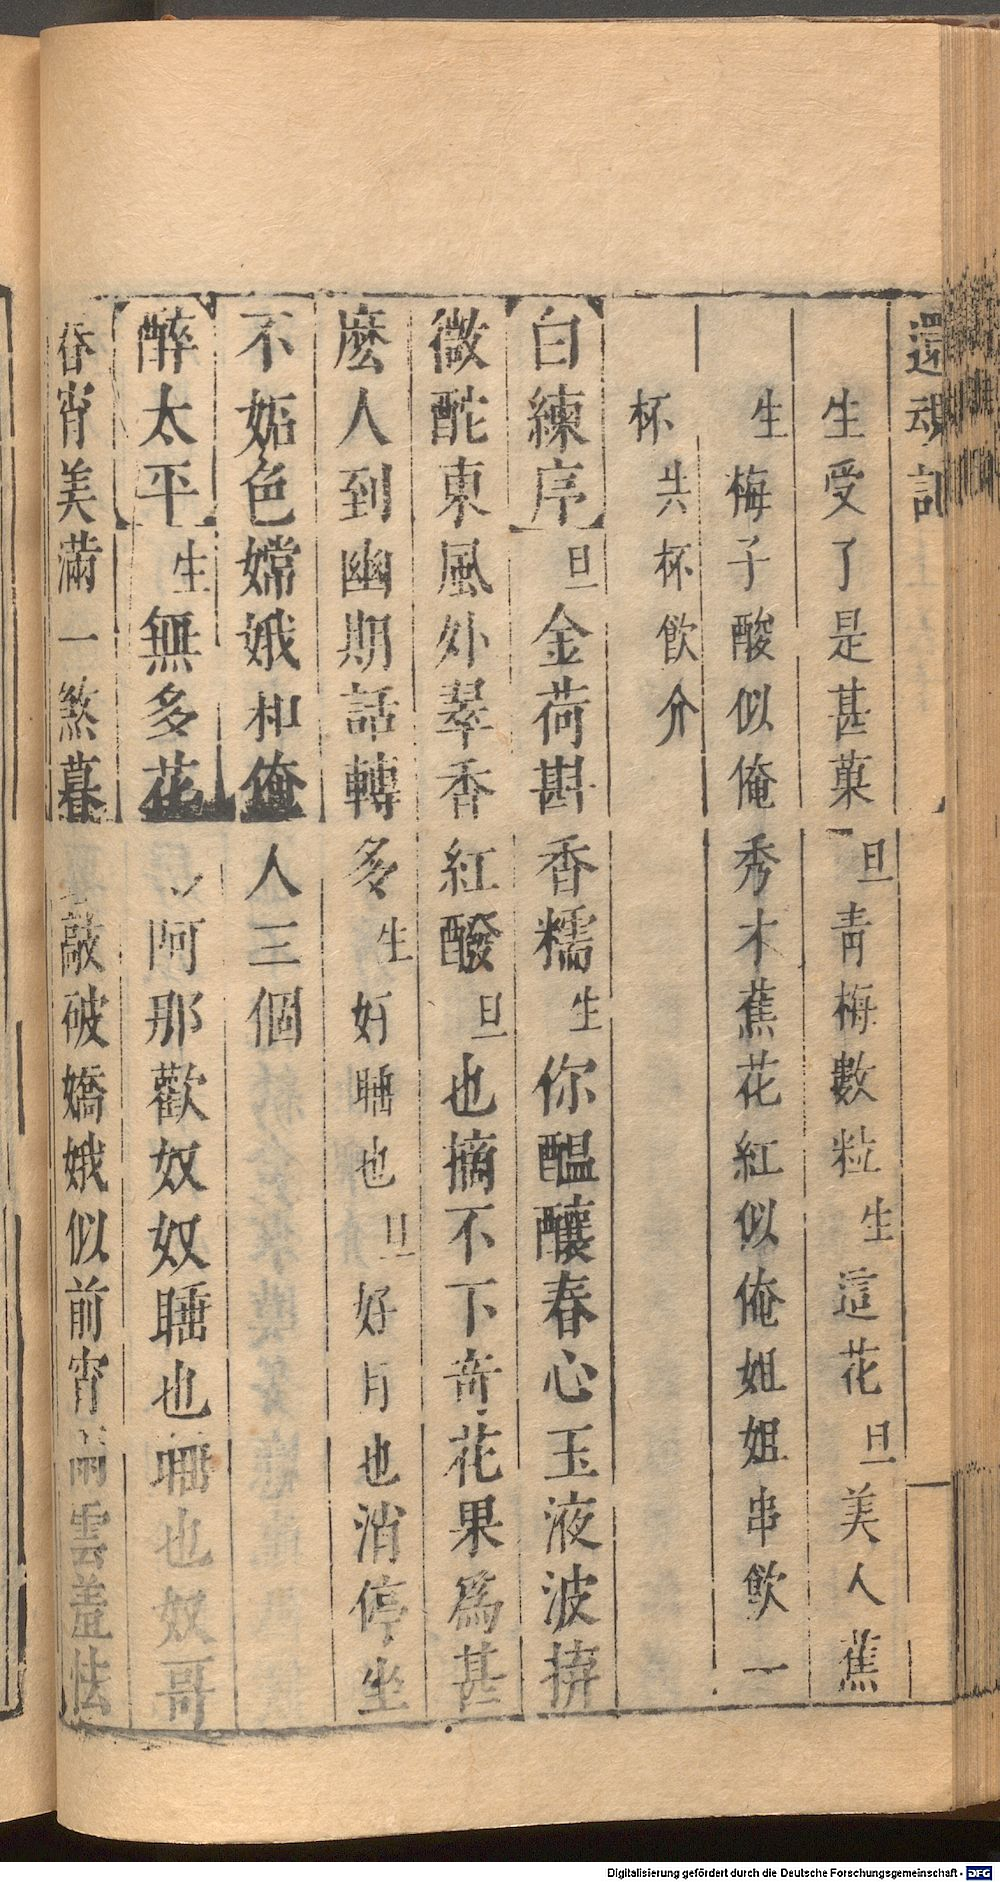 還魂記
生受了是甚菓旦青梅數粒生這花旦美人蕉
生梅子酸似俺秀才蕉花紅似俺姐姐串飲一
杯共杯飲介
白練序旦金荷斟香糯生你醞釀春心玉液波拚
微酡東風外翠香紅醱旦也摘不下奇花果爲甚
麽人到幽期話轉多生好睡也旦好月也消停坐
不妬色嫦娥和俺人三個
醉太平生無多花阿那歡奴奴睡也睡也奴哥
春宵美滿一煞暮敲破嬌娥似前宵雨雲羞怯
Digitalisierung gefördert durch die Deutsche Forschungsgemeinschaft - DFG